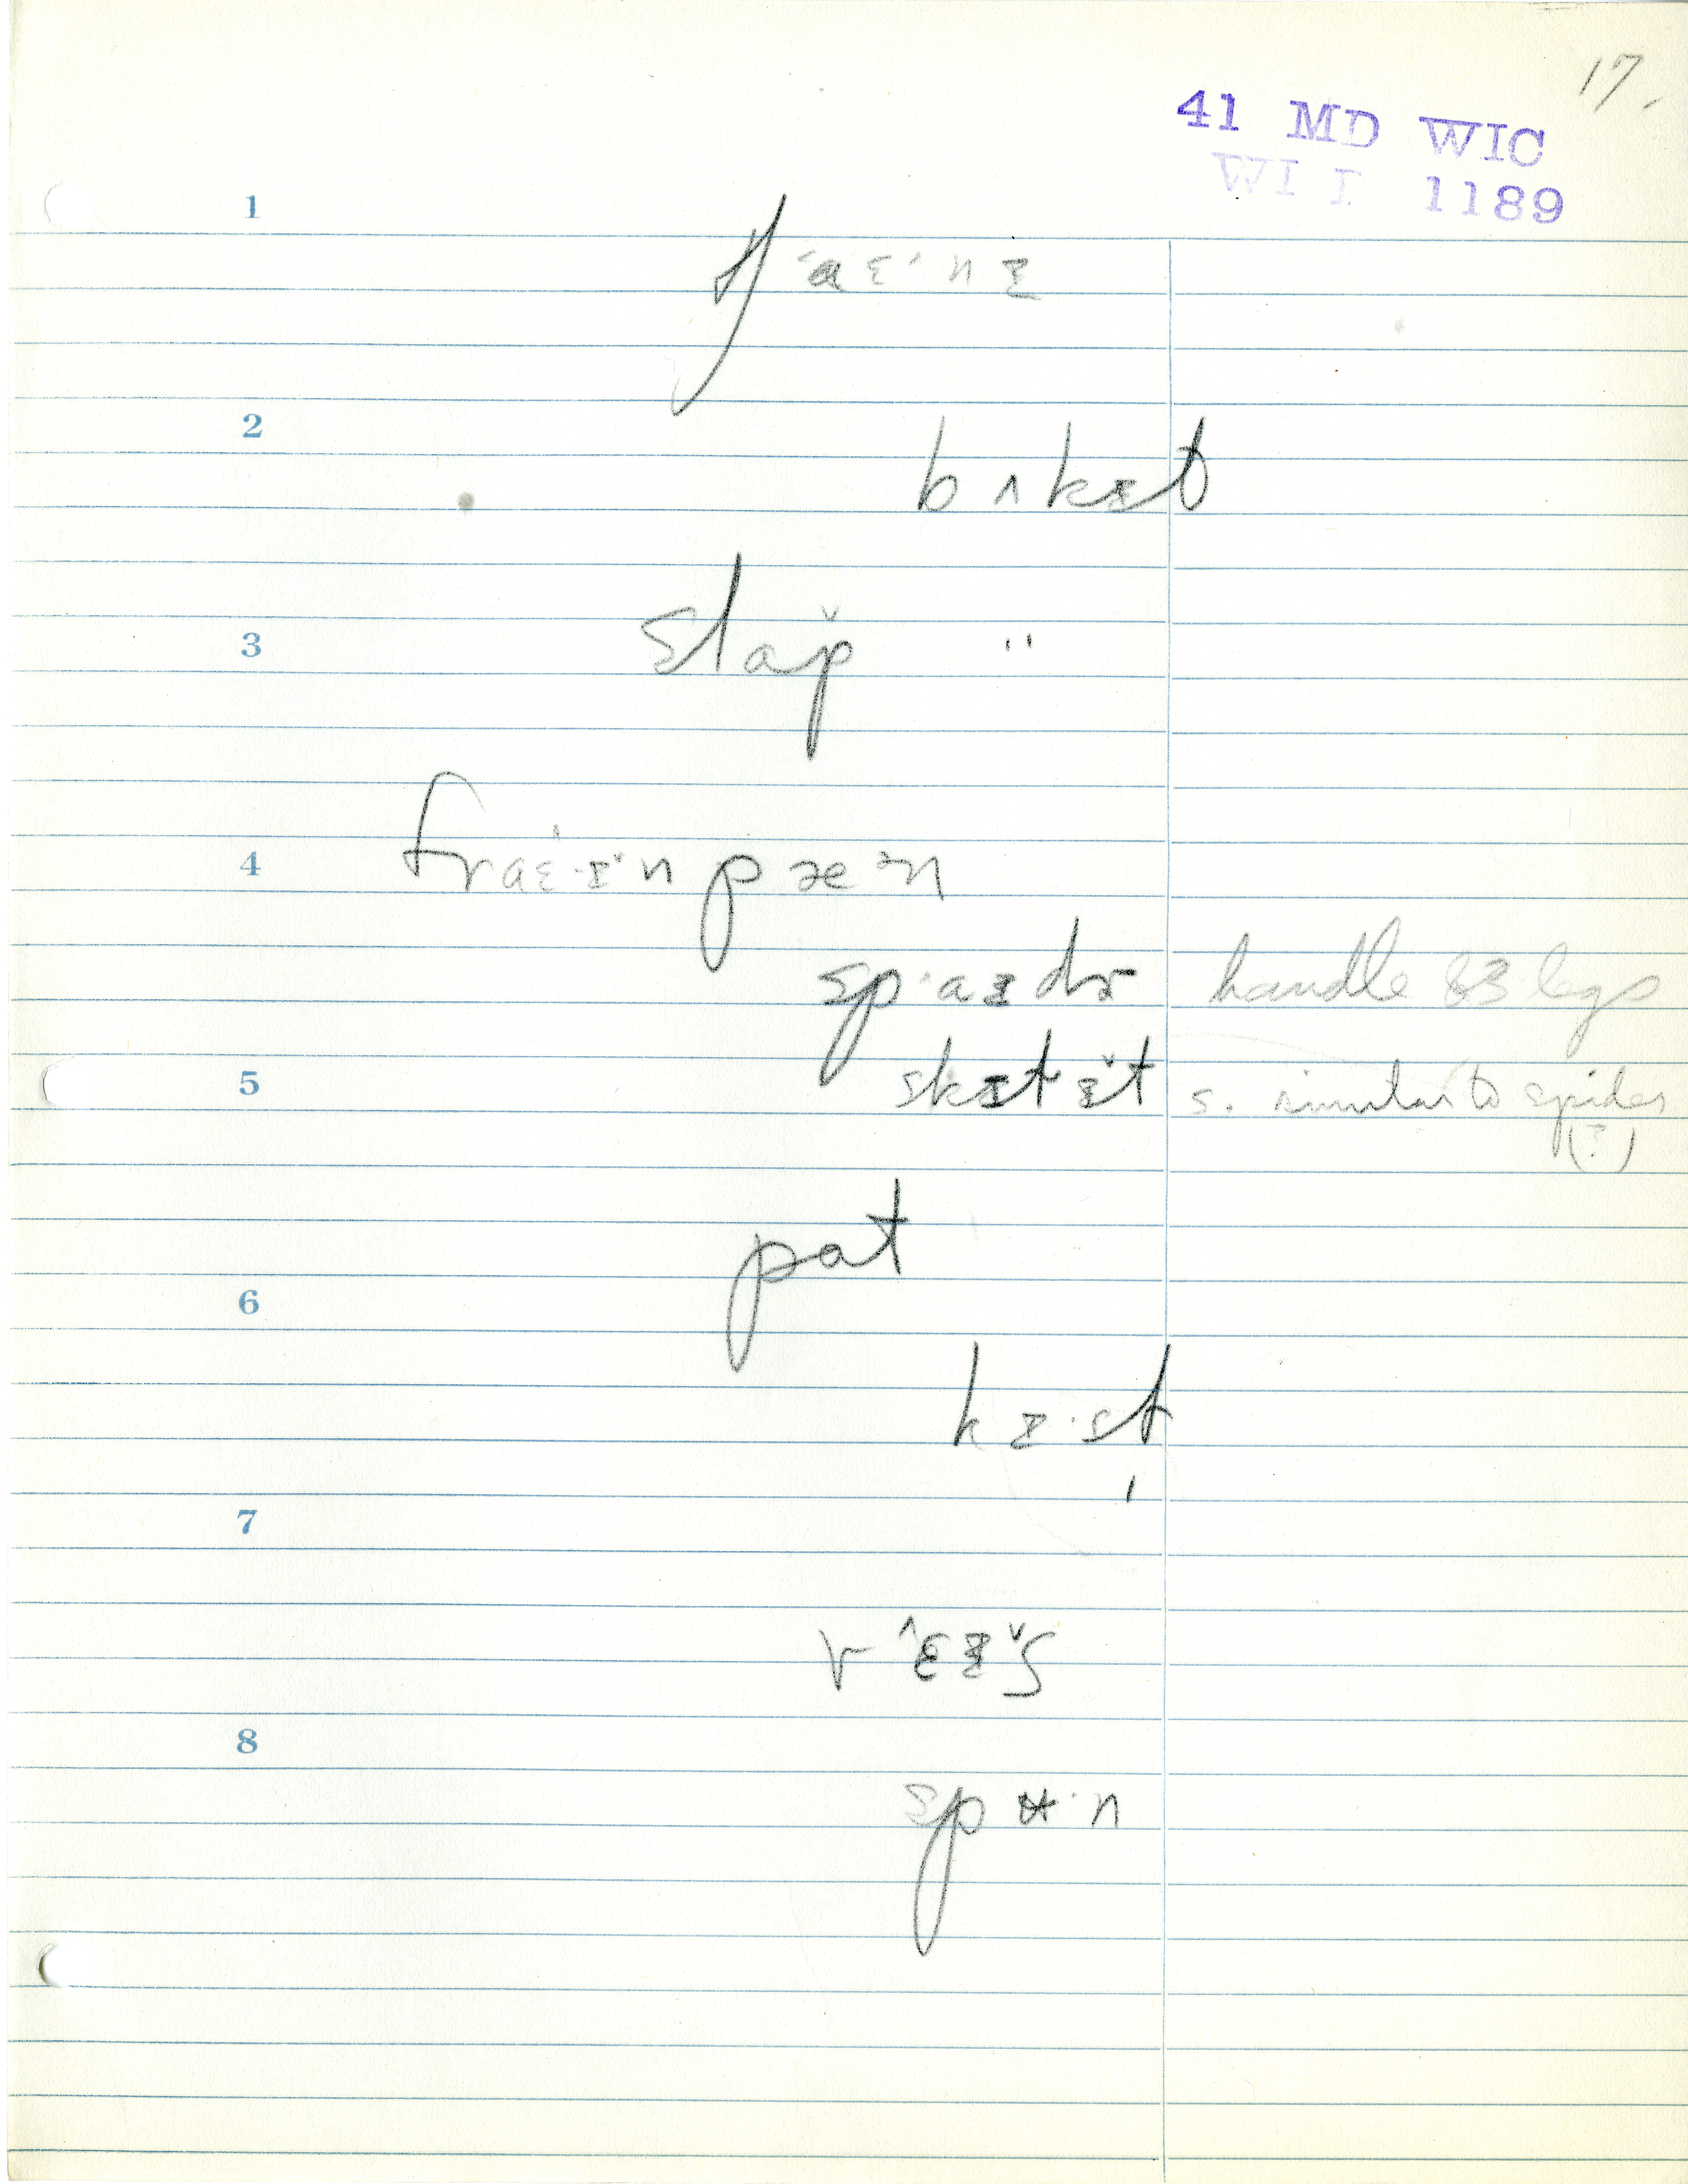 17.
41 MD WIC
WI I 1189
1
tʃˈaɛˈnɪ
2
bʌkɪt
3
slap̌ "
4
fraɛ·ɪ̌n pæᵊn
spˈaɪdɚ handle & 3 legs
5
skɪt ɪ̌t s. similar to spider
(?)
pat
6
kɪ·st
7
v ɛ̂ɪ̌s
8
spʉ·n